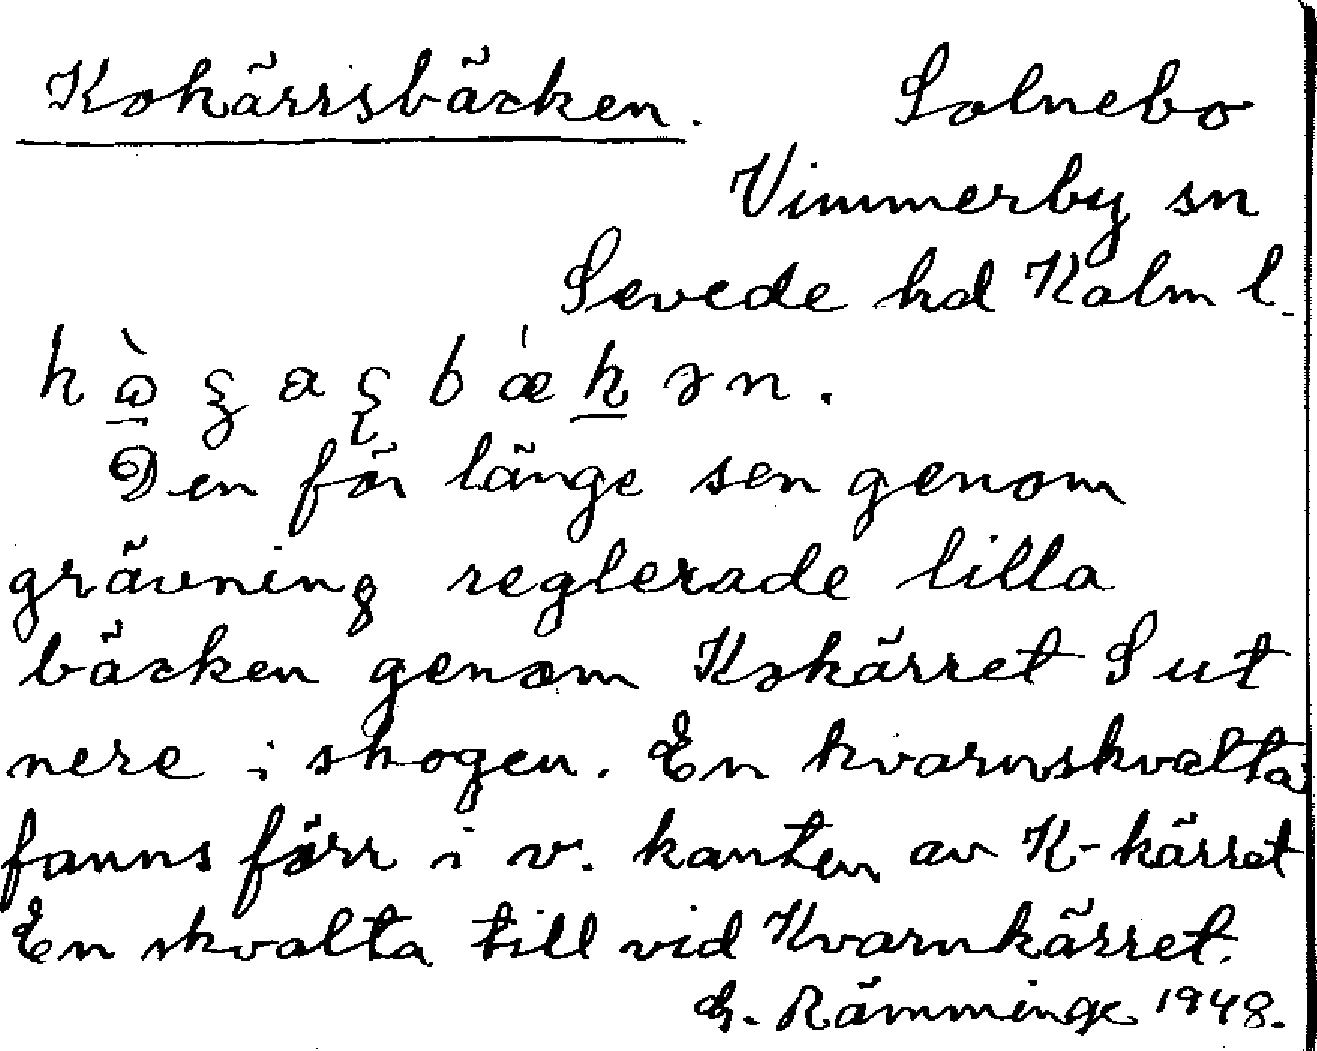 Kohärrsbäcken. Solnebo
Vimmerby sn
Sevede hd Kalm l.
Den för länge sen genom
grävning reglerade lilla
bäcken genom Kohärret S ut
nere i skogen. En kvarnskvalta
fanns förr i v. kanten av K-kärret
En skvalta till vid Kvarnkärret.
G. Rämminge 1948.